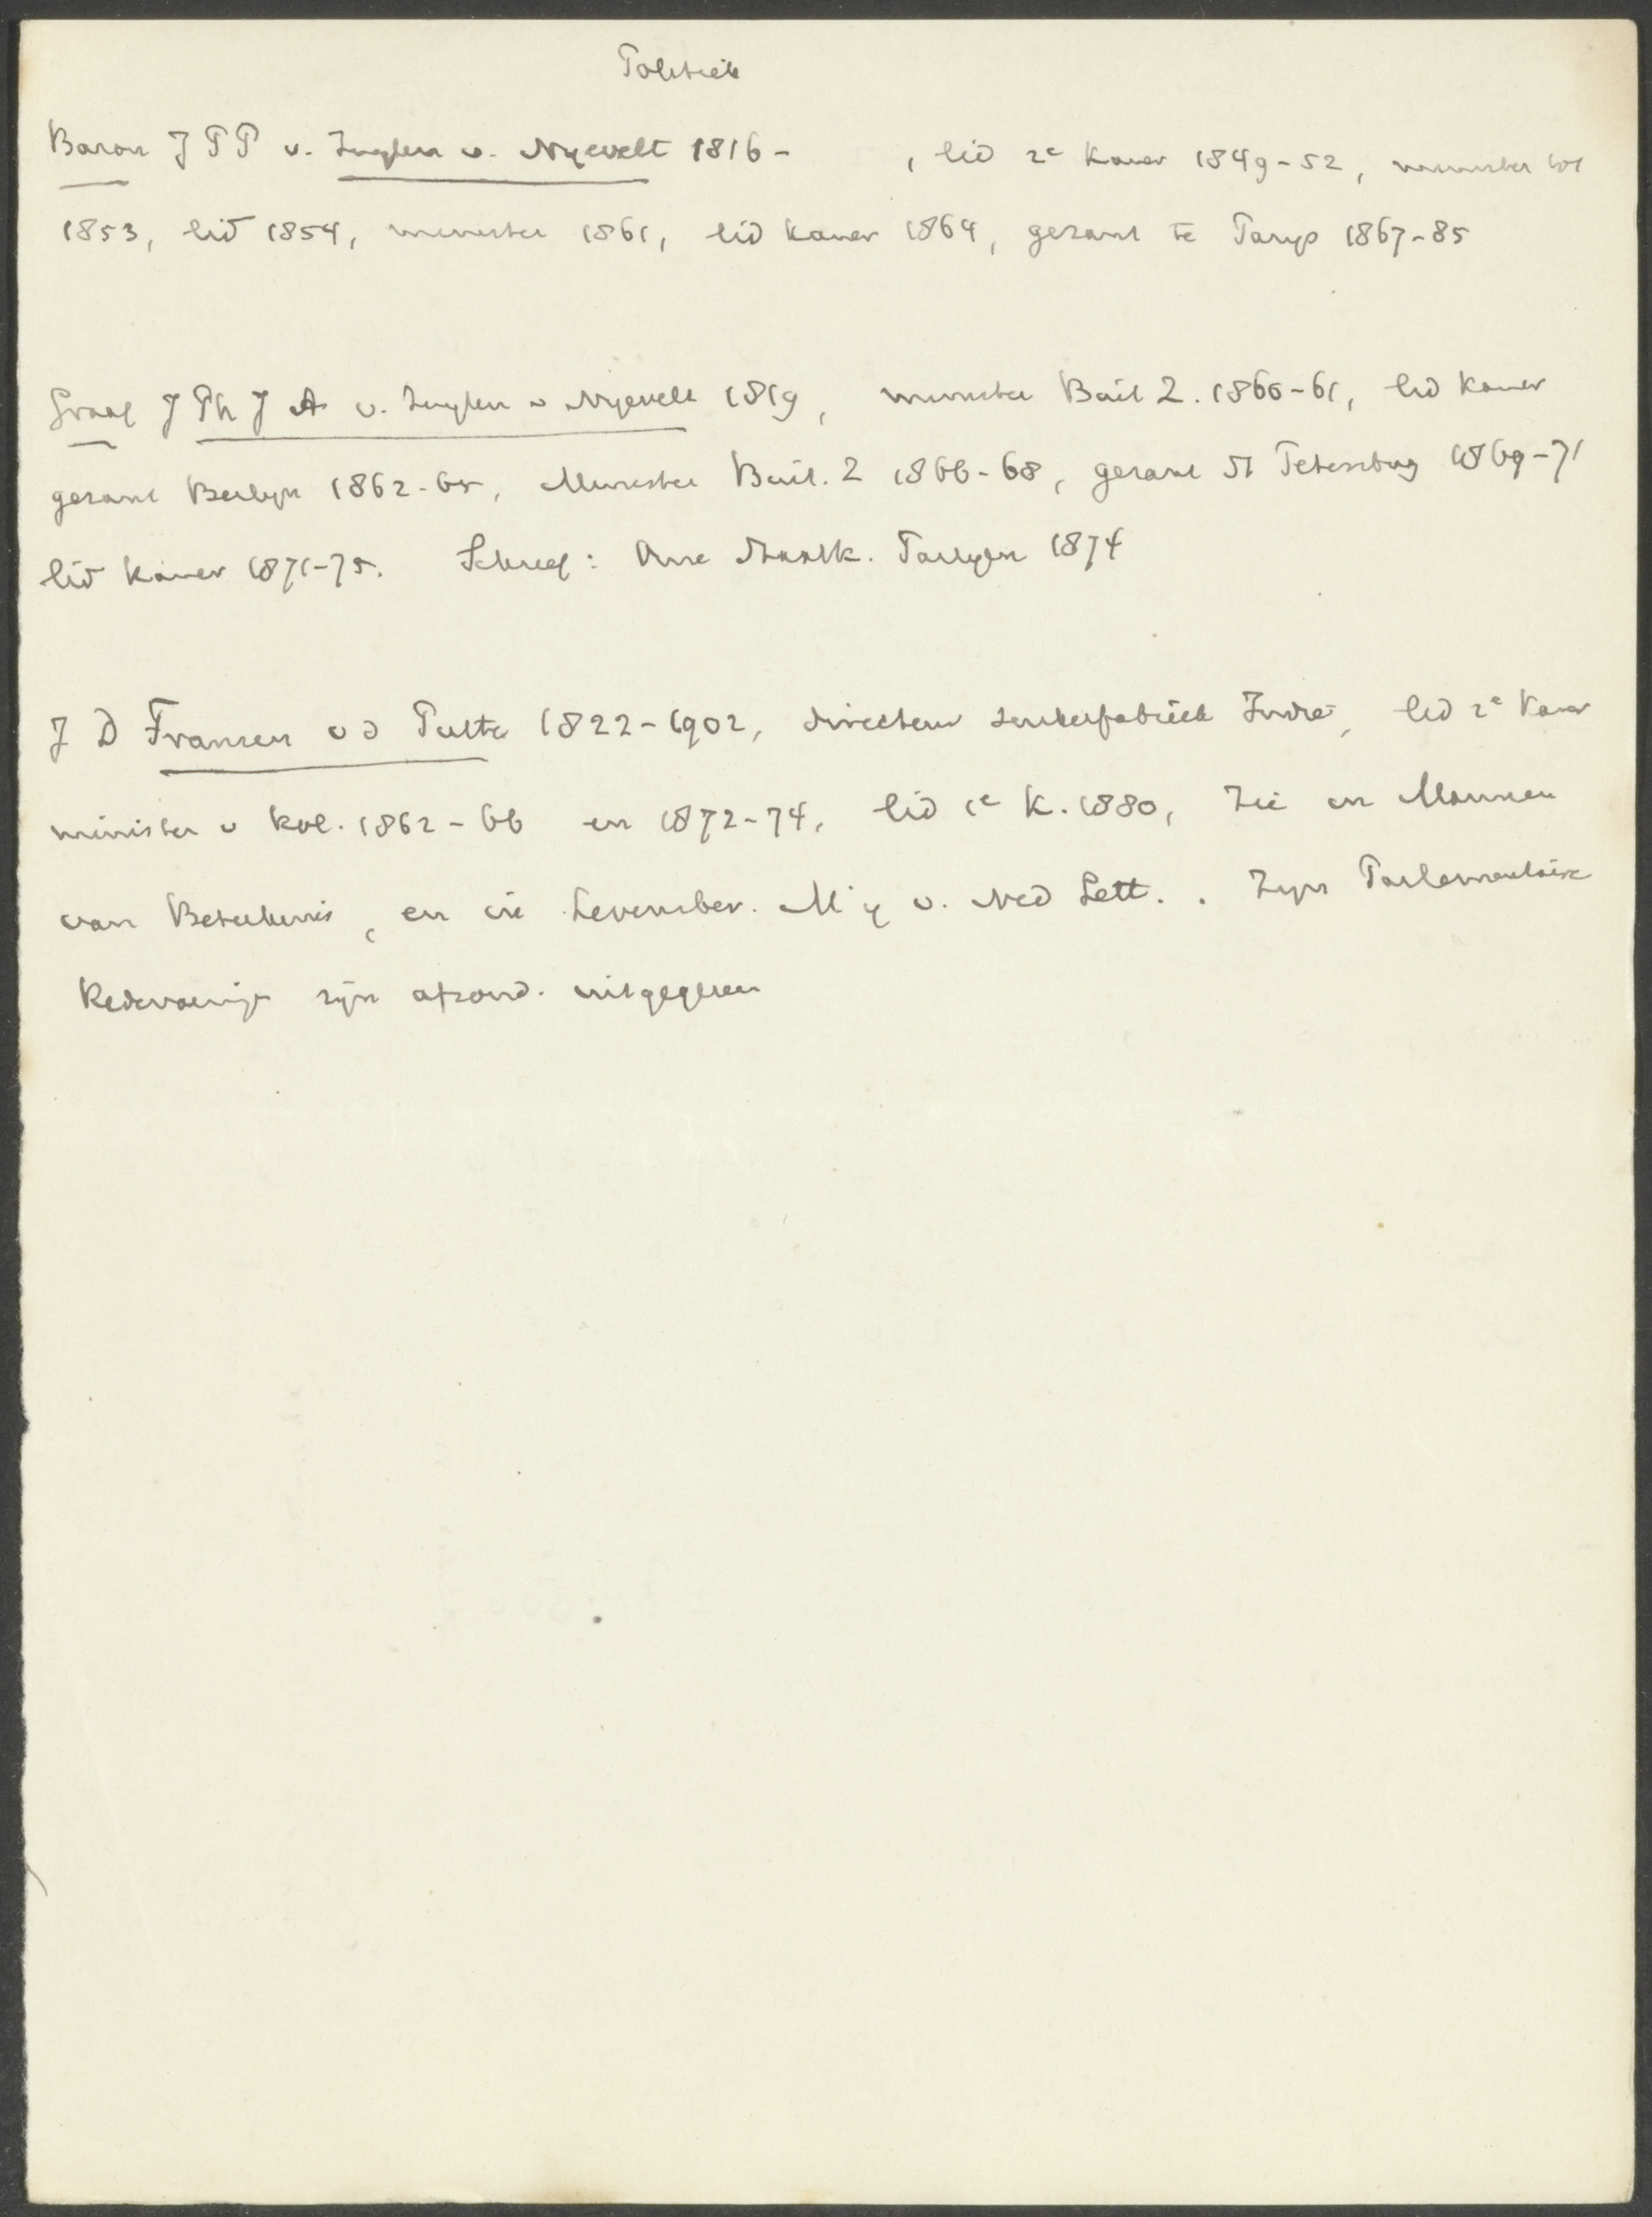 Politiek
Baron J P P v. Zuylen v. Nyevelt 1816 - , lid 2e Kamer 1849-52, minister tot
1853, lid 1854, minister 1861, lid kamer 1864, gezant te Parijs 1867-85
Graaf J Ph J A v. Zuylen v Nyevelt 1819, minister Buit Z. 1860-61, lid Kamer
gezant Berlijn 1862-65, Minister Buit. Z 1866-68, gezant St Petersburg 1869-71
lid kamer 1871-75. Schreef: Onze Staatk. Partijen 1874
J D Fransen v d Putte 1822-1902, directeur suikerfabriek Indië, lid 2e Kamer
minister v kol. 1862-66 en 1872-74, lid 1e K. 1880, Zie in Mannen
van Beteekenis, en in Levensber. Mij v. Ned Lett. . Zijn Parlementaire
Redevoeringen zijn afzond. uitgegeven